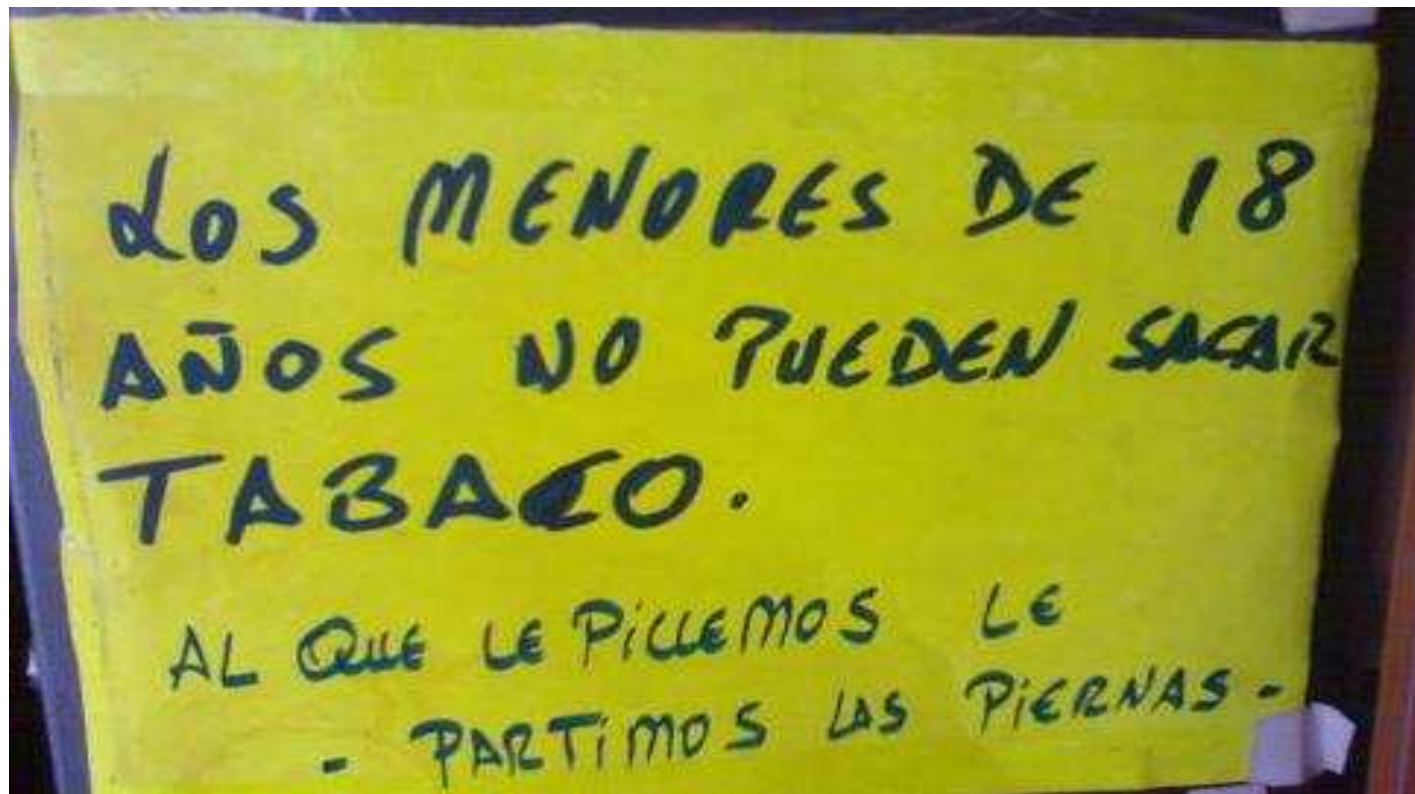 LOS MENORES DE 18
AÑOS NO PUEDEN SACAR
TABACO.
AL QUE LE PiLLEMOS LE
- PARTiMOS LAS PiERNAS -